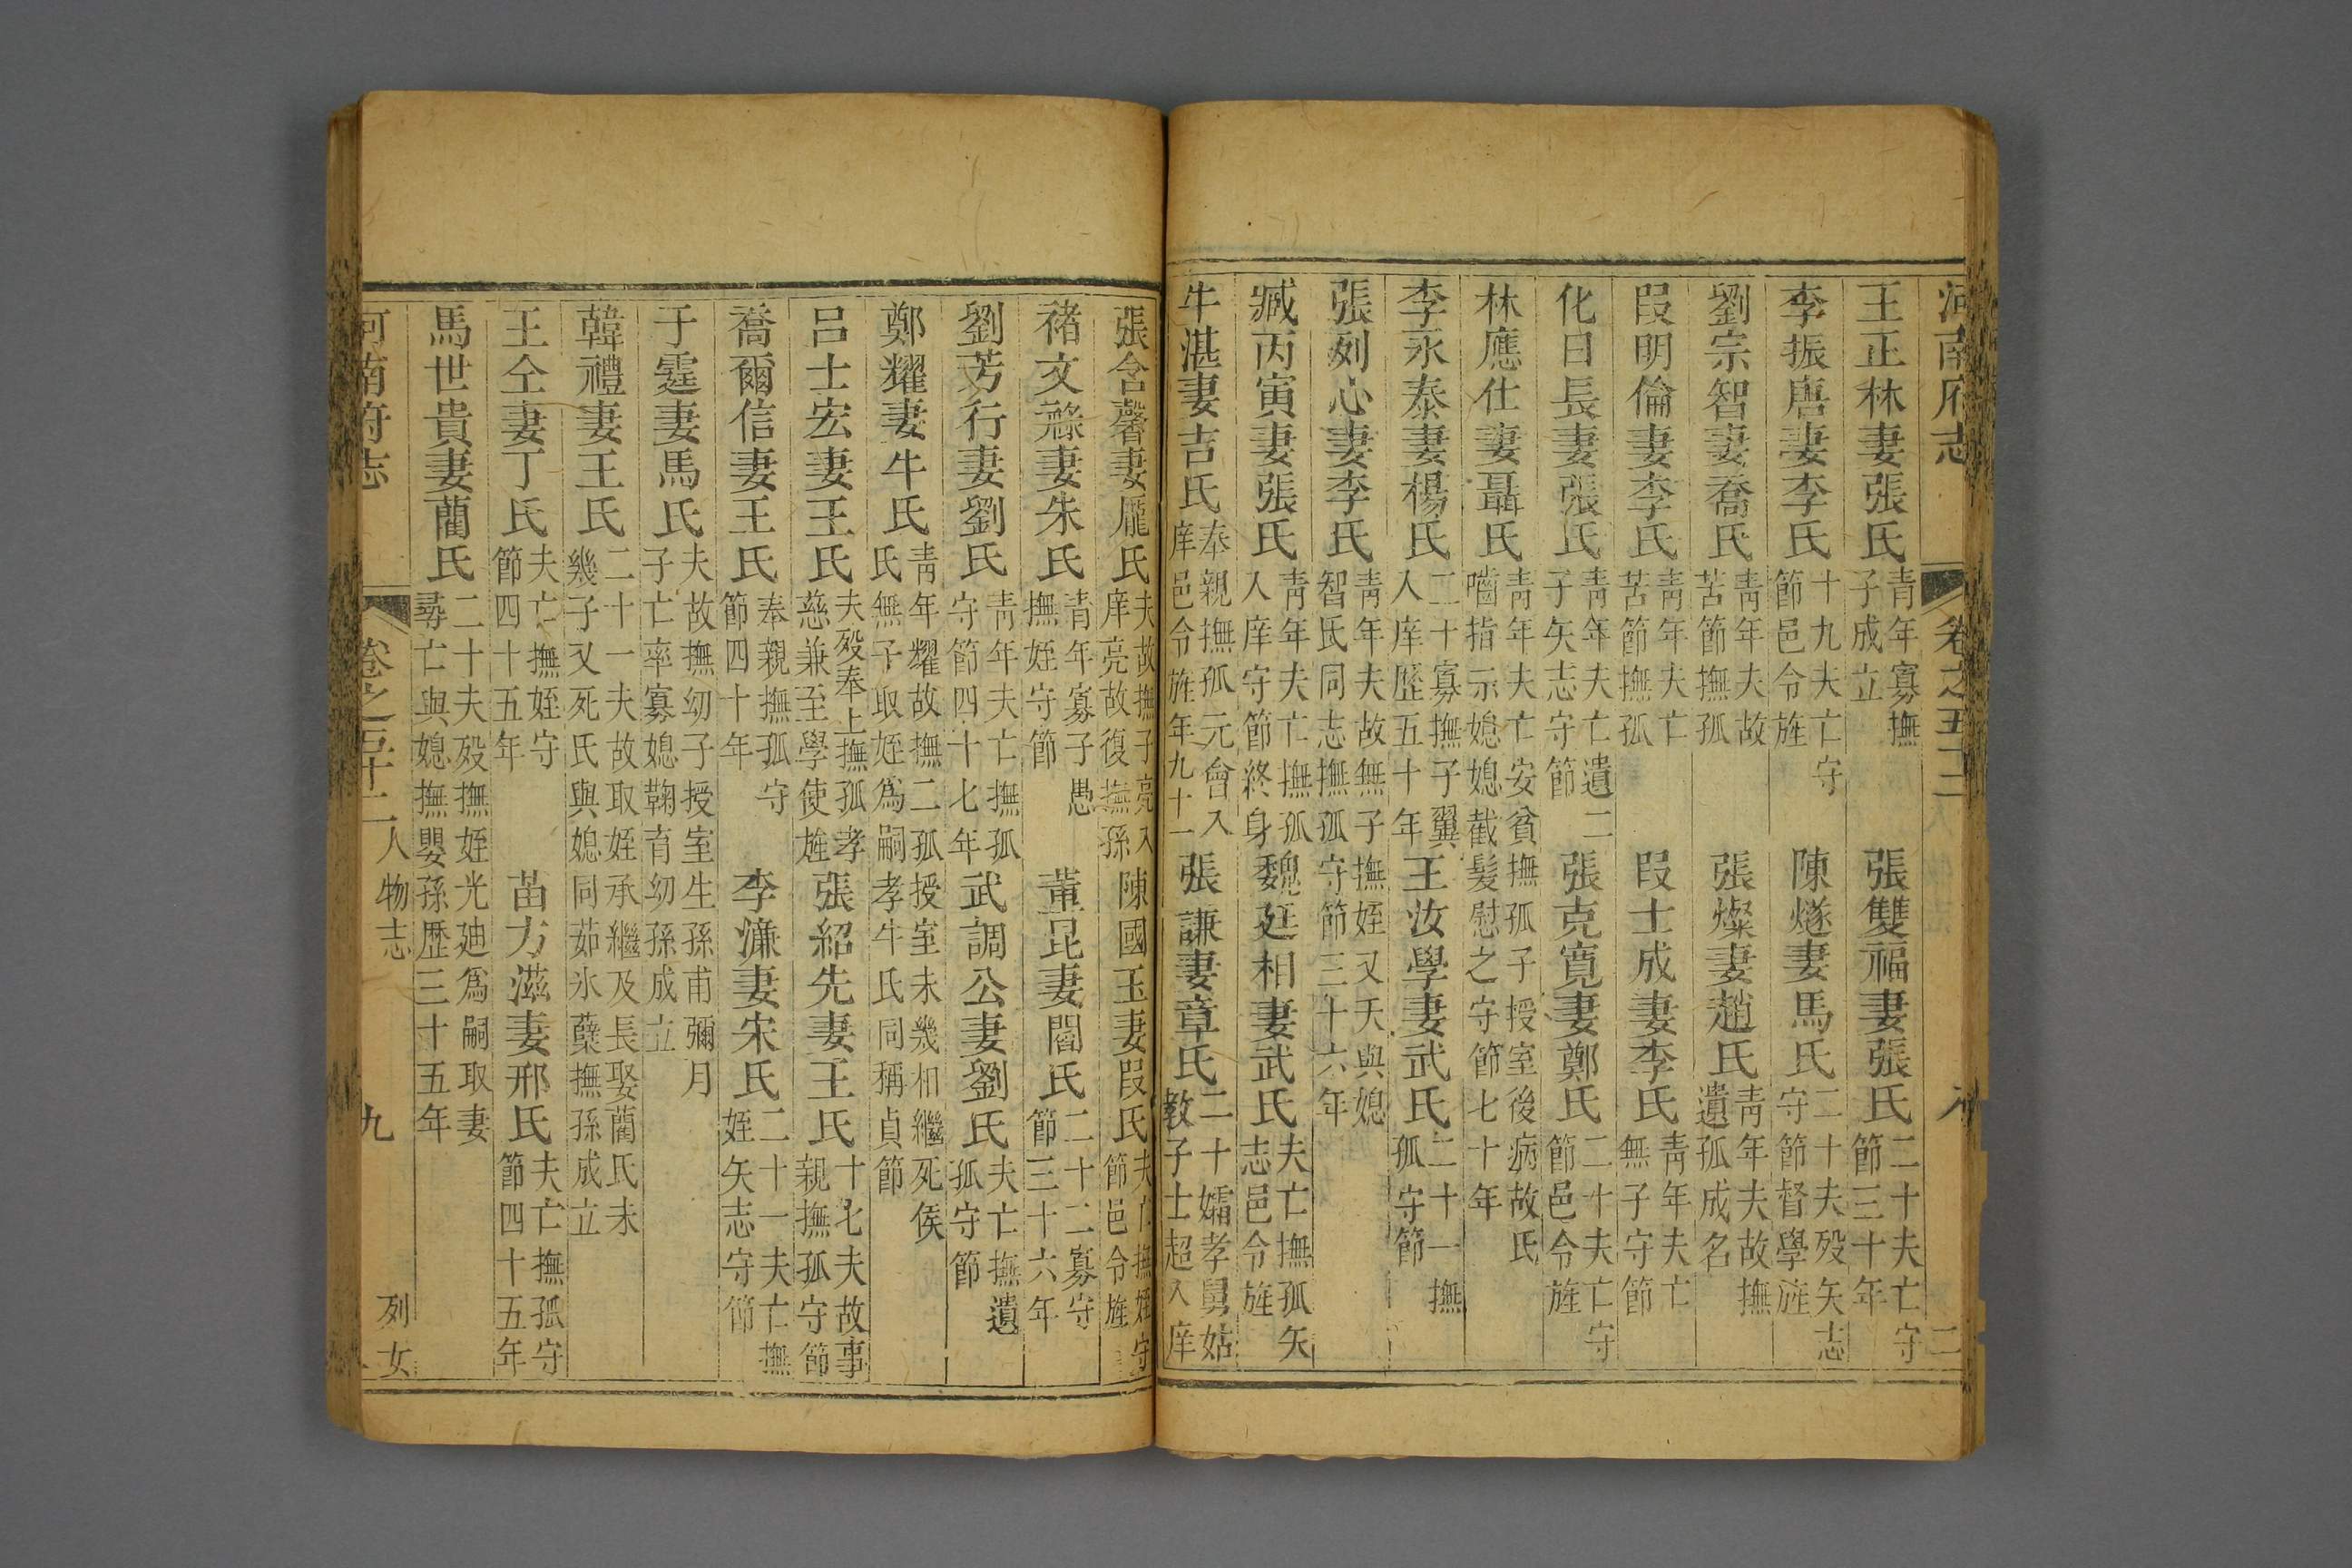 河南府志 卷之五十二
王正林妻張氏 青年寡撫子成立 張雙福妻張氏 二十夫亡守節三十年
李振唐妻李氏 十九夫亡守節邑令旌 陳燧妻馬氏 二十夫歿矢志守節督學旌
劉宗智妻喬氏 青年夫故苦節撫孤 張燦妻趙氏 青年夫故撫遺孤成名
段明倫妻李氏 青年夫亡苦節撫孤 段士成妻李氏 青年夫亡無子守節
化日長妻張氏 青年夫亡遺二子矢志守節 張克寬妻鄭氏 二十夫亡守節邑令旌
林應仕妻聶氏 青年夫亡安貧撫孤子授室後病故氏嚙指示媳媳截髮慰之守節七十年
李永泰妻楊氏 二十寡撫子翼入庠歷五十年 王汝學妻武氏 二十一撫孤守節
張刻心妻李氏 青年夫故無子撫姪又夭與媳智氏同志撫孤守節三十六年
臧丙寅妻張氏 青年夫亡撫孤入庠守節終身 魏廷相妻武氏 夫亡撫孤矢志邑令旌
牛湛妻吉氏 奉親撫孤元會入庠邑令旌年九十一 張謙妻章氏 二十孀孝舅姑教子士超入庠
張含馨妻龐氏 夫故撫子亮入庠亮故復撫孫 陳國玉妻段氏 夫亡撫姪守節邑令旌
褚文蘂妻朱氏 青年寡子愚撫姪守節 董昆妻閻氏 二十二寡守節三十六年
劉芳行妻劉氏 青年夫亡撫孤守節四十七年 武調公妻劉氏 夫亡撫遺孤守節
鄭耀妻牛氏 青年耀故撫二孤授室未幾相繼死侯氏無子取姪為嗣孝牛氏同稱貞節
呂士宏妻王氏 夫歿奉上撫孤孝慈兼至學使旌 張紹先妻王氏 十七夫故事親撫孤守節
喬爾信妻王氏 奉親撫孤守節四十年 李濂妻宋氏 二十一夫亡撫姪矢志守節
于霆妻馬氏 夫故撫幼子授室生孫甫彌月子亡率寡媳鞠育幼孫成立
韓禮妻王氏 二十一夫故取姪承繼及長娶藺氏未幾子又死氏與媳同茹氷蘗撫孫成立
王仝妻丁氏 夫亡撫姪守節四十五年 苗力滋妻邢氏 夫亡撫孤守節四十五年
馬世貴妻藺氏 二十夫歿撫姪光廸為嗣取妻尋亡與媳撫嬰孫歷三十五年
河南府志 卷之五十二 人物志 九 列女